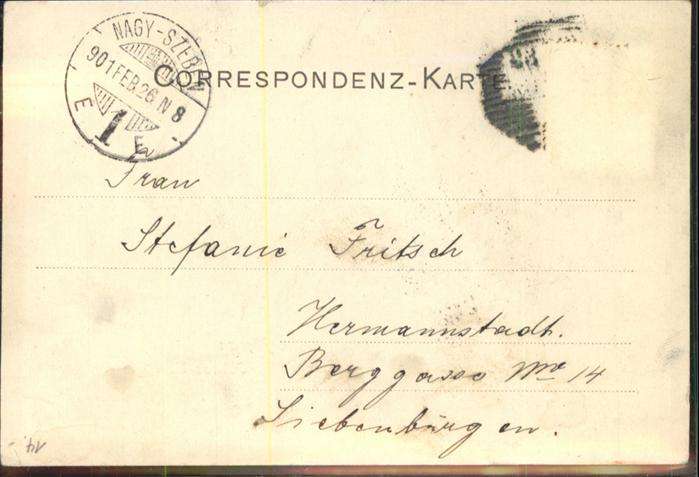 NAGY-SZEBEN
901 FEB. 26 N 8
E 1 E
CORRESPONDENZ-KARTE
Frau
Stefanie Fritsch
Hermannstadt.
Berggasse No 14
Siebenbürgen.
14.-